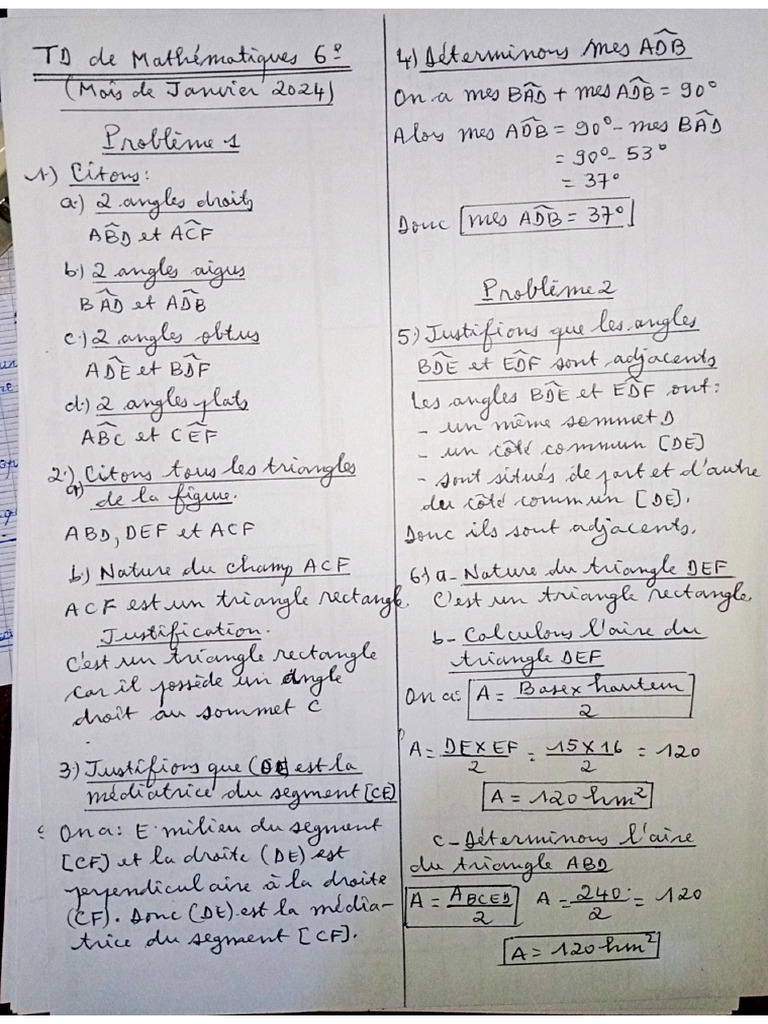 TD de Mathématiques 6e
(Mois de Janvier 2024)
Problème 1
1) Citons:
a) 2 angles droits
AB̂D et AĈF
b) 2 angles aigus
BÂD et AD̂B
c) 2 angles obtus
AD̂E et BD̂F
d) 2 angles plats
AB̂C et CÊF
2) a) Citons tous les triangles
de la figure.
ABD, DEF et ACF
b) Nature du champ ACF
ACF est un triangle rectangle.
Justification.
C'est un triangle rectangle
car il possède un angle
droit au sommet C
3) Justifions que (DE) est la
médiatrice du segment [CF]
On a: E milieu du segment
[CF] et la droite (DE) est
perpendiculaire à la droite
(CF). Donc (DE) est la média-
trice du segment [CF].
4) Déterminons mes AD̂B
On a mes BÂD + mes AD̂B = 90°
Alors mes AD̂B = 90° - mes BÂD
= 90° - 53°
= 37°
Donc mes AD̂B = 37°
Problème 2
5) Justifions que les angles
BD̂E et ED̂F sont adjacents
Les angles BD̂E et ED̂F ont:
- un même sommet D
- un côté commun [DE]
- sont situés de part et d'autre
du côté commun [DE].
Donc ils sont adjacents.
6) a - Nature du triangle DEF
C'est un triangle rectangle.
b - Calculons l'aire du
triangle DEF
On a: A = Base x hauteur / 2
A = DE x EF / 2 = 15 x 16 / 2 = 120
A = 120 hm²
c - Déterminons l'aire
du triangle ABD
A = ABCED / 2 A = 240 / 2 = 120
A = 120 hm²